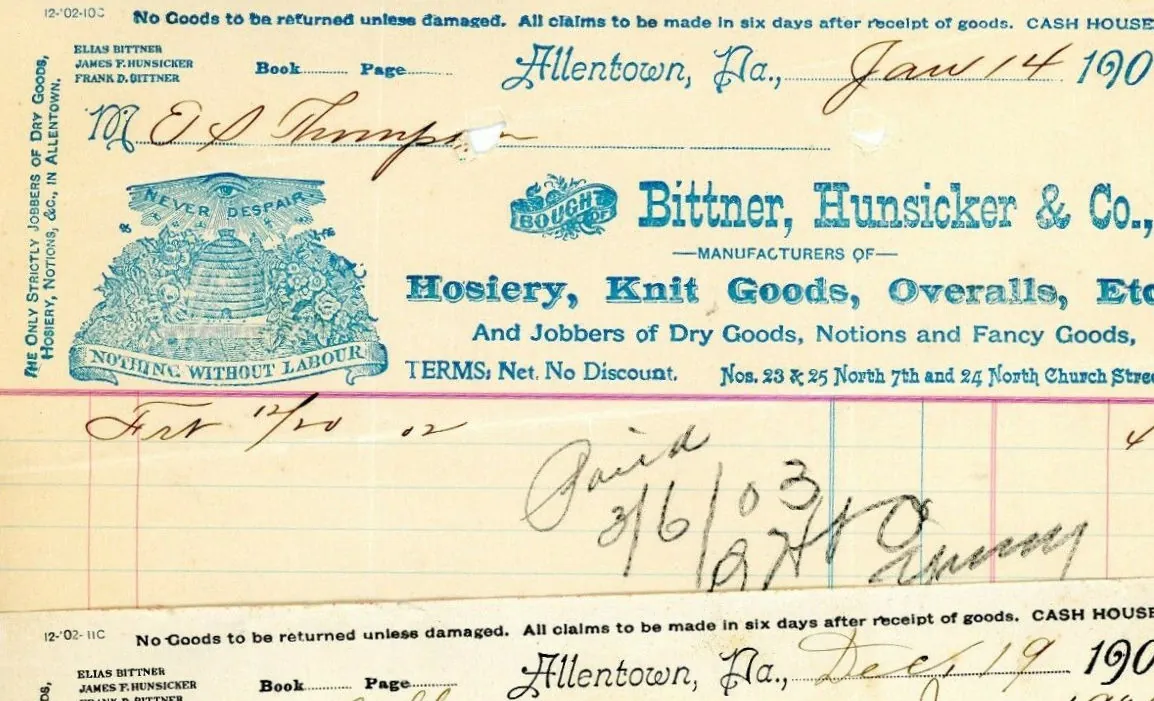 12-'02-10C
No Goods to be returned unless damaged. All claims to be made in six days after receipt of goods. CASH HOUSE
ELIAS BITTNER
JAMES F. HUNSICKER
FRANK D. BITTNER
Book........ Page........
Allentown, Pa., Jan 14 190
M E S Thompson
THE ONLY STRICTLY JOBBERS OF DRY GOODS,
HOSIERY, NOTIONS, &C., IN ALLENTOWN.
NEVER DESPAIR
NOTHING WITHOUT LABOUR
BOUGHT OF
Bittner, Hunsicker & Co.,
—MANUFACTURERS OF—
Hosiery, Knit Goods, Overalls, Etc
And Jobbers of Dry Goods, Notions and Fancy Goods,
TERMS: Net. No Discount.
Nos. 23 & 25 North 7th and 24 North Church Stree
Frt 12/20 02
4
Paid
3/6/03
12-'02-11C
No Goods to be returned unless damaged. All claims to be made in six days after receipt of goods. CASH HOUSE
ELIAS BITTNER
JAMES F. HUNSICKER
FRANK D. BITTNER
Book........ Page........
Allentown, Pa., Dec. 19 190